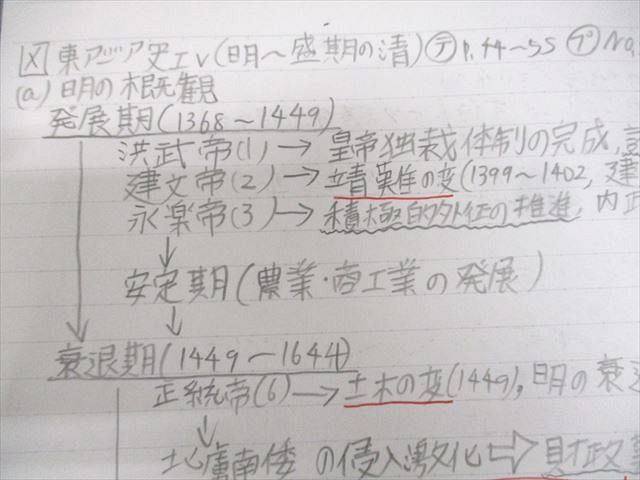 図 東アジア史Ⅳ(明～盛期の清) テ P.44～55 プ No.
(a) 明の概観
発展期(1368～1449)
洪武帝(1) → 皇帝独裁体制の完成,
建文帝(2) → 靖難の変(1399～1402, 建
永楽帝(3) → 積極的外征の推進, 内
↓
安定期(農業・商工業の発展)
↓
衰退期(1449～1644)
正統帝(6) → 土木の変(1449), 明の衰
↓
北虜南倭 の侵入激化 ⇨ 財政